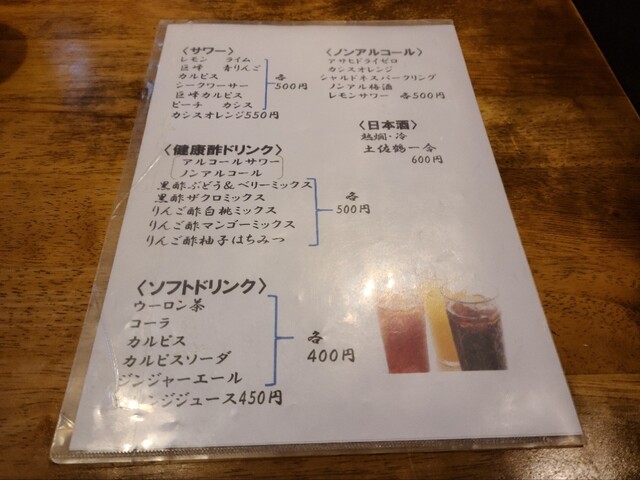 〈サワー〉
レモン　ライム
巨峰　青りんご
カルピス
シークワーサー
巨峰カルピス
ピーチ　カシス
各
500円
カシスオレンジ550円
〈ノンアルコール〉
アサヒドライゼロ
カシスオレンジ
シャルドネスパークリング
ノンアル梅酒
レモンサワー　各500円
〈日本酒〉
熱燗・冷
土佐鶴一合
600円
〈健康酢ドリンク〉
アルコールサワー
ノンアルコール
黒酢ぶどう&ベリーミックス
黒酢ザクロミックス
りんご酢白桃ミックス
りんご酢マンゴーミックス
りんご酢柚子はちみつ
各
500円
〈ソフトドリンク〉
ウーロン茶
コーラ
カルピス
カルピスソーダ
ジンジャーエール
各
400円
ンジジュース450円